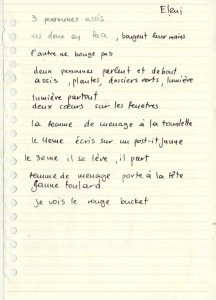 Eleni
3 personnes assis
les deux en face, bougent leur mains
l'autre ne bouge pas
deux personnes parlent et debout
assis, plantes, dossiers verts, lumière
lumière partout
deux cœurs sur les fenetres
la femme de menage à la toillette
le 4eme écris sur un post-it jaune
le 3eme il se lève, il part
femme de menage porte à la tête
jaune foulard
je vois le rouge bucket